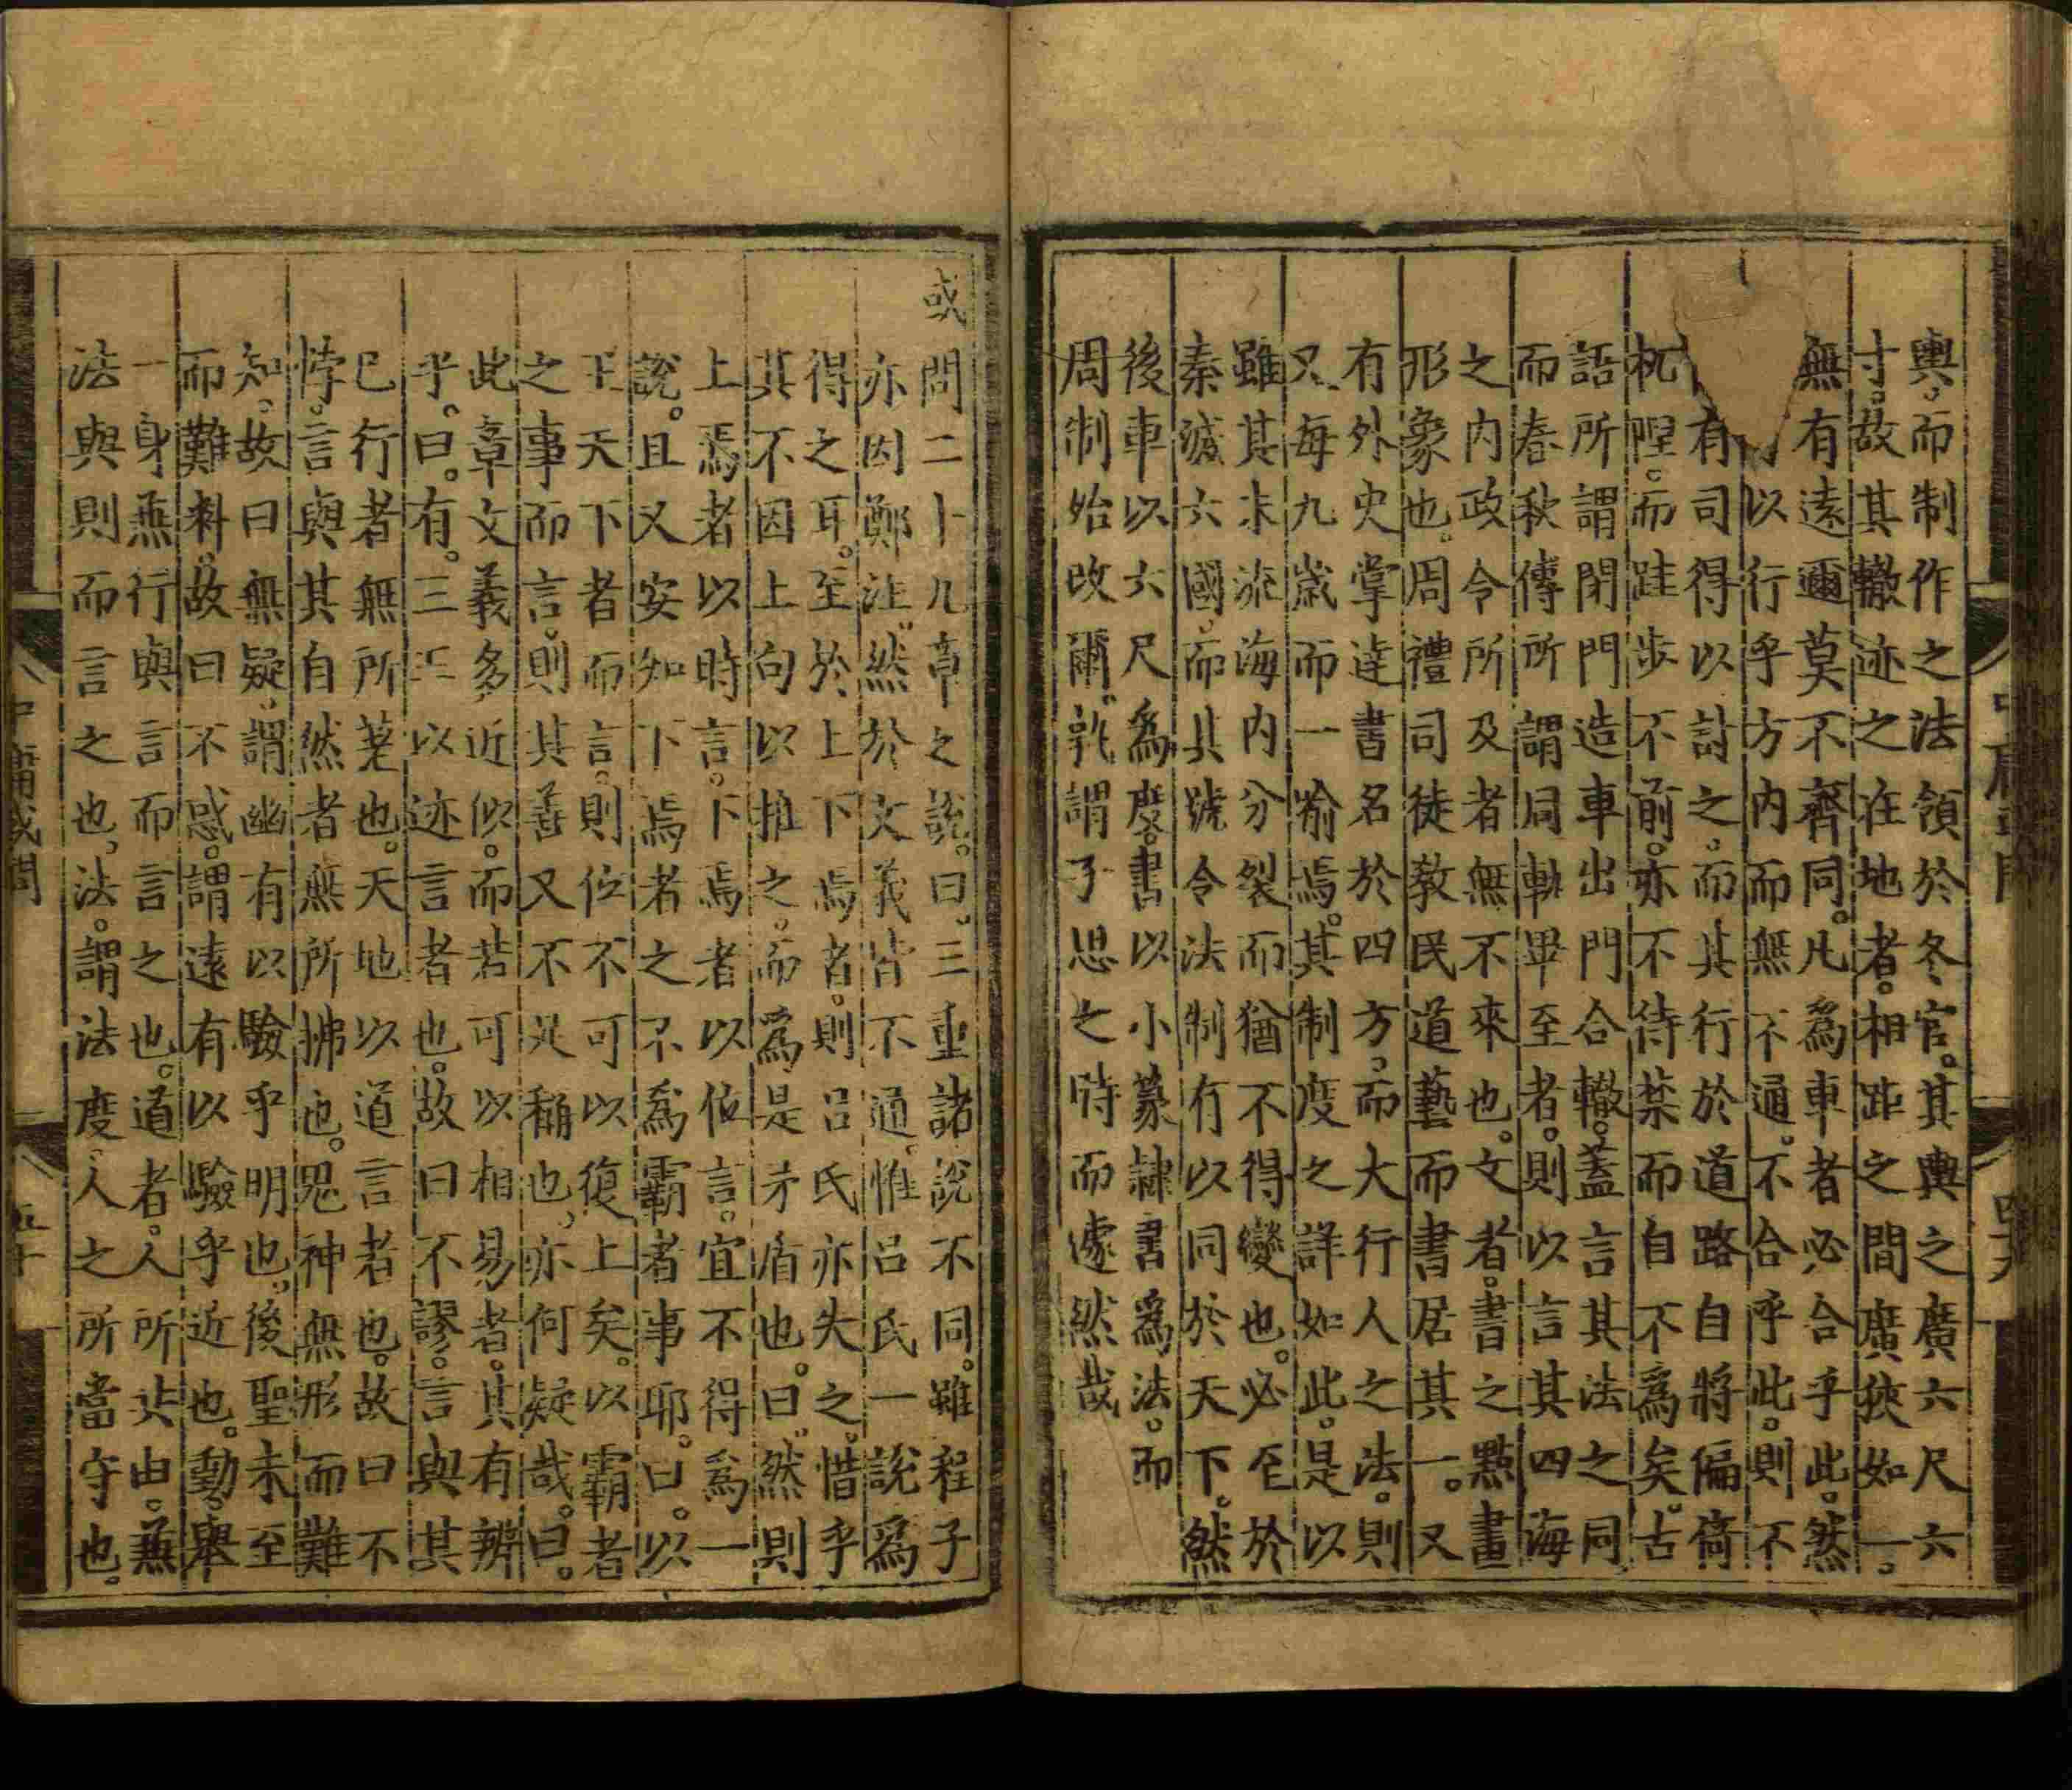 輿。而制作之法領於冬官。其輿之廣六尺六
寸。故其轍迹之在地者。相距之間廣狹如一。
無有遠邇莫不齊同。凡為車者必合乎此。然
以行乎方內而無不通。不合乎此。則不
有司得以討之。而其行於道路自將偏倚
杌隉。而跬步不前。亦不待禁而自不為矣。古
語所謂閉門造車出門合轍。蓋言其法之同
而春秋傳所謂同軌畢至者。則以言其四海
之內政令所及者無不來也。文者。書之點畫
形象也。周禮司徒教民道藝而書居其一。又
有外史掌達書名於四方。而大行人之法。則
又每九歲而一喻焉。其制度之詳如此。是以
雖其末流海內分裂而猶不得變也。必至於
秦滅六國。而其號令法制有以同於天下。然
後車以六尺為度。書以小篆隸書為法。而
周制始改爾。孰謂子思之時而遽然哉
或問二十九章之說。曰。三重諸說不同。雖程子
亦因鄭注。然於文義皆不通。惟呂氏一說為
得之耳。至於上下焉者。則呂氏亦失之。惜乎
其不因上句以推之。而為是矛盾也。曰。然則
上焉者以時言。下焉者以位言。宜不得為一
說。且又安知下焉者之不為霸者事耶。曰。以
王天下者而言。則位不可以復上矣。以霸者
之事而言。則其善又不足稱也。亦何疑哉。曰。
此章文義多近似。而若可以相易者。其有辨
乎。曰。有。三王以迹言者也。故曰不謬。言與其
已行者無所差也。天地以道言者也。故曰不
悖。言與其自然者無所拂也。鬼神無形而難
知。故曰無疑。謂幽有以驗乎明也。後聖未至
而難料。故曰不惑。謂遠有以驗乎近也。動。舉
一身兼行與言而言之也。道者。人所共由。兼
法與則而言之也。法。謂法度。人之所當守也。
中庸或問
五十